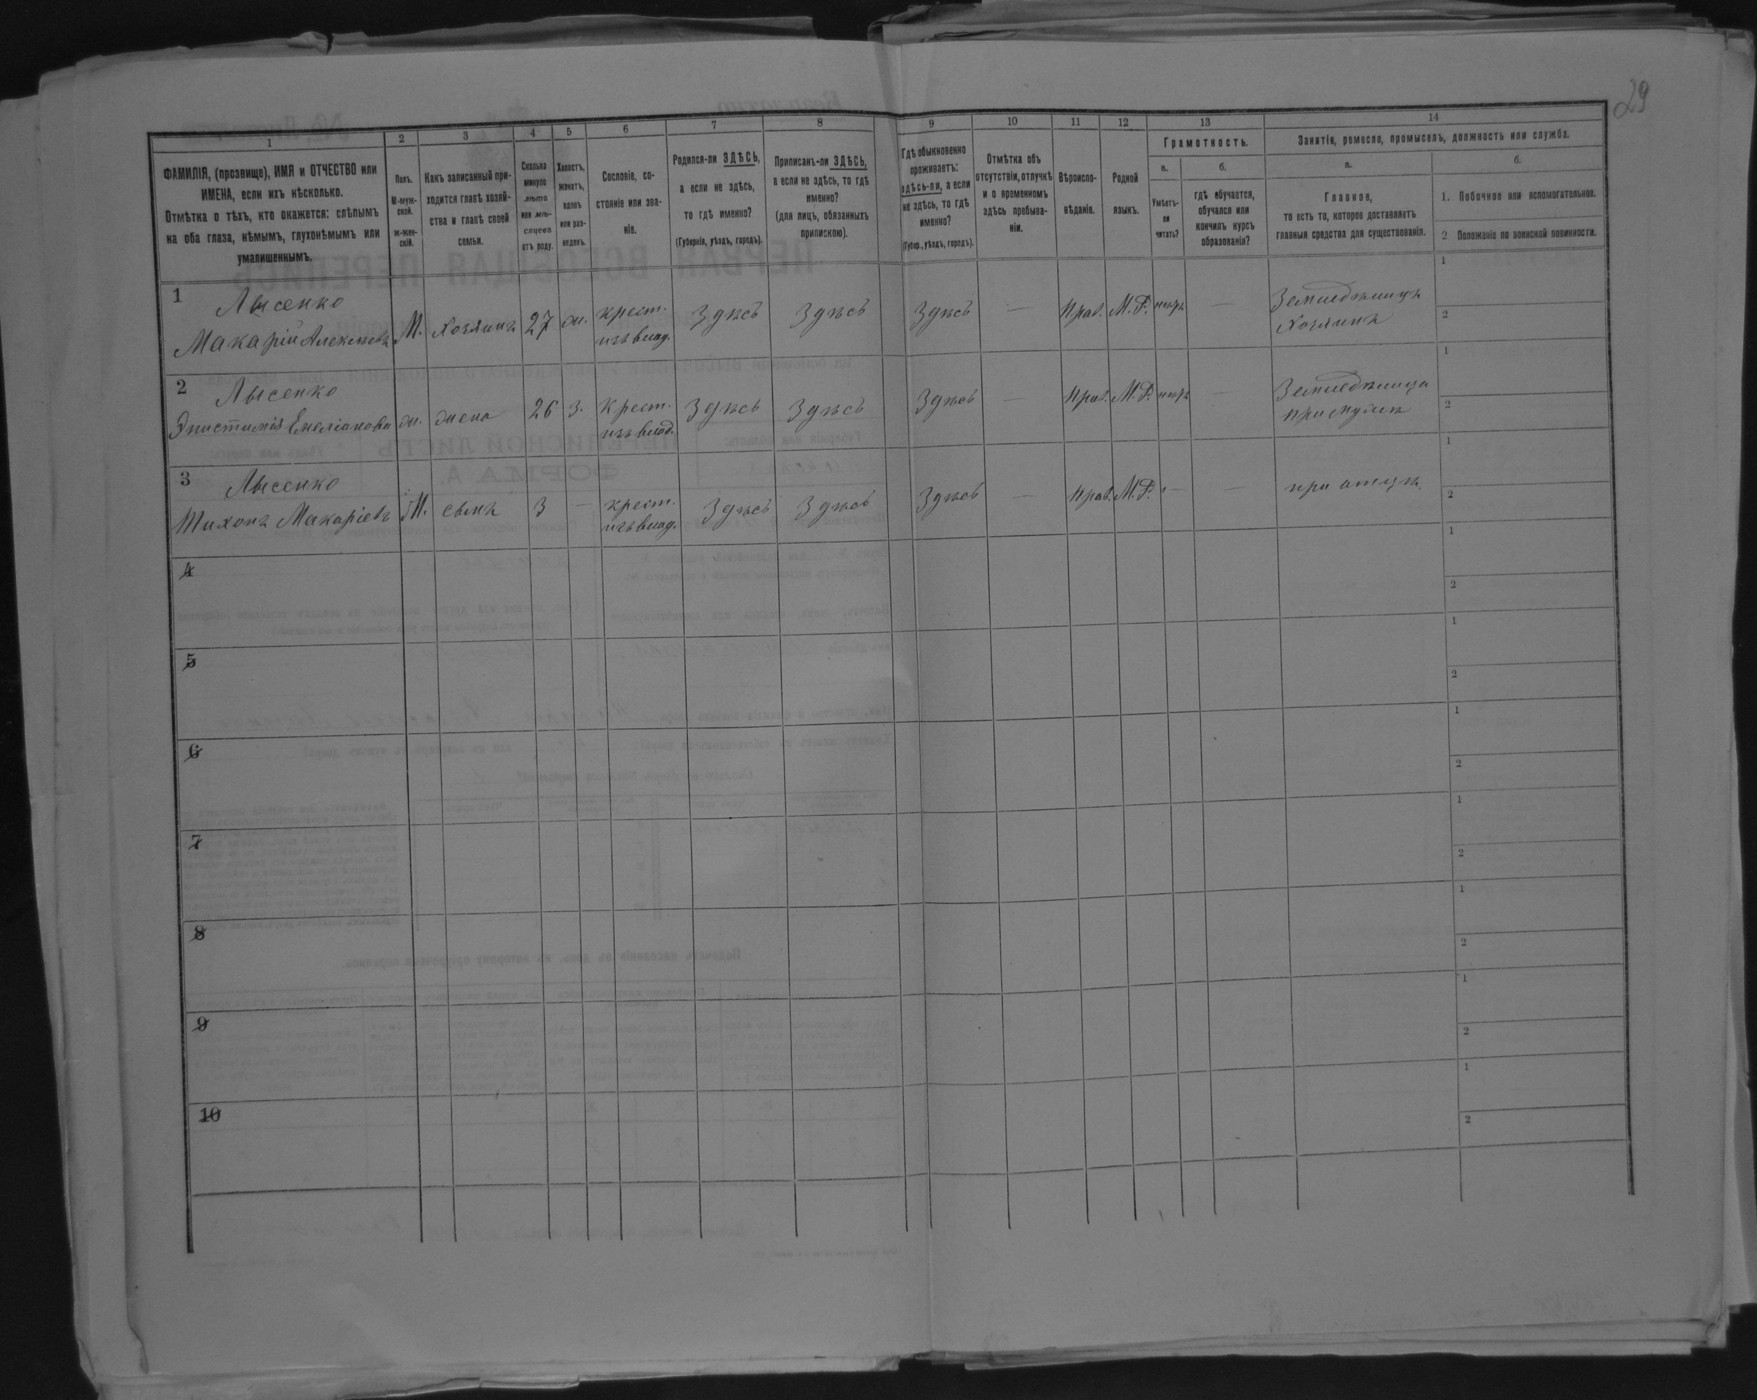 29
1 2 3 4 5 6 7 8 9 10 11 12 13 14
ФАМИЛІЯ, (прозвище), ИМЯ и ОТЧЕСТВО или
ИМЕНА, если ихъ нѣсколько.
Отмѣтка о тѣхъ, кто окажется: слѣпымъ
на оба глаза, нѣмымъ, глухонѣмымъ или
умалишеннымъ.
Полъ.
М-муж-
ской.
ж-жен-
скій.
Какъ записанный при-
ходится главѣ хозяй-
ства и главѣ своей
семьи.
Сколько
минуло
лѣтъ
или мѣ-
сяцевъ
отъ роду.
Холостъ,
женатъ,
вдовъ
или раз-
веденъ.
Сословіе, со-
стояніе или зва-
ніе.
Родился-ли ЗДѢСЬ,
а если не здѣсь,
то гдѣ именно?
(Губернія, уѣздъ, городъ).
Приписанъ-ли ЗДѢСЬ,
а если не здѣсь, то гдѣ
именно?
(для лицъ, обязанныхъ
припискою).
Гдѣ обыкновенно
проживаетъ:
здѣсь-ли, а если
не здѣсь, то гдѣ
именно?
(Губер., уѣздъ, городъ).
Отмѣтка объ
отсутствіи, отлучкѣ
и о временномъ
здѣсь пребыва-
ніи.
Вѣроиспо-
вѣданіе.
Родной
языкъ.
Грамотность.
а.
Умѣетъ-
ли
читать?
б.
гдѣ обучается,
обучался или
кончилъ курсъ
образованія?
Занятія, ремесло, промыселъ, должность или служба.
а.
Главное,
то есть то, которое доставляетъ
главныя средства для существованія.
б.
1. Побочное или вспомогательное.
2 Положеніе по воинской повинности.
1 Лысенко
Макарій Алексѣевъ М. хозяинъ 27 ж. крест. изъ влад. Здѣсь Здѣсь Здѣсь — Прав. М.Р. нѣтъ — Земледѣлецъ хозяинъ 1 2
2 Лысенко
Эпистимія Емеліанова ж. жена 26 з. Крест. изъ влад. Здѣсь Здѣсь Здѣсь — Прав. М.Р. нѣтъ — Земледѣлица при мужѣ 1 2
3 Лысенко
Тихонъ Макаріевъ М. сынъ 3 — крест. изъ влад. Здѣсь Здѣсь Здѣсь — Прав. М.Р. — — при отцѣ 1 2
4 1 2
5 1 2
6 1 2
7 1 2
8 1 2
9 1 2
10 1 2